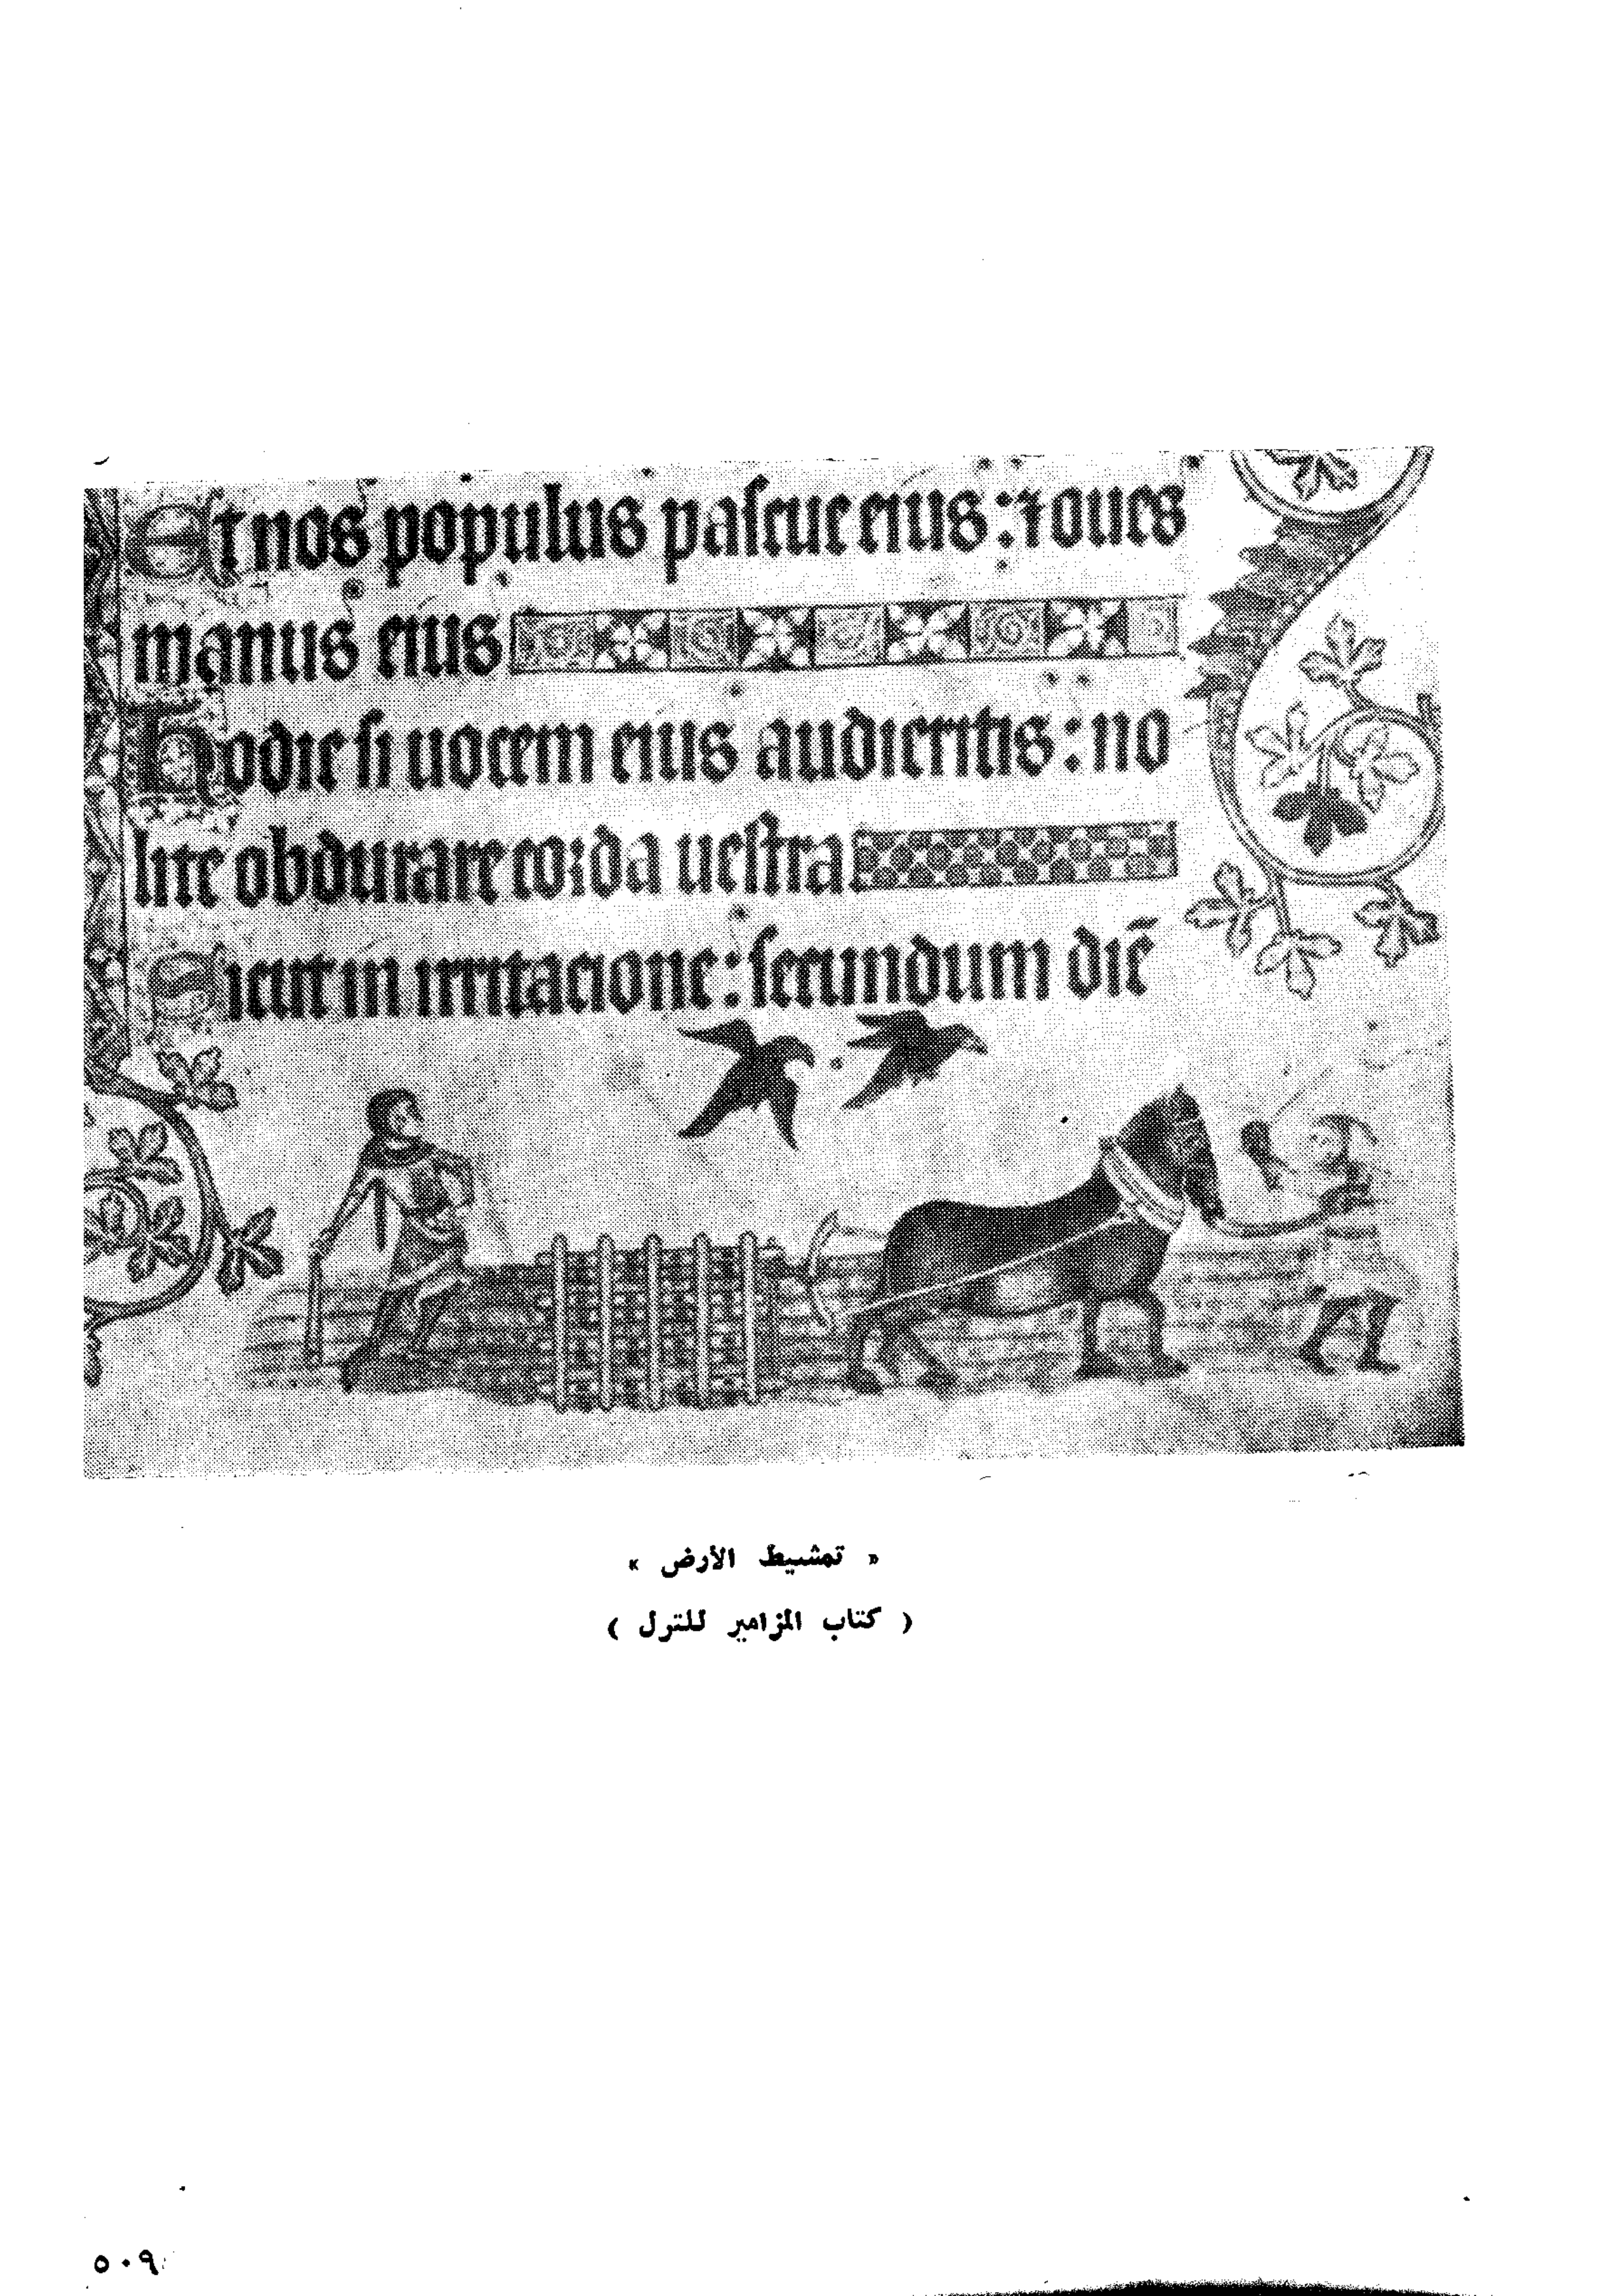 Et nos populus pascue eius: ⁊ oues
manus eius
Hodie si uocem eius audieritis: no
lite obdurare corda uestra
Sicut in irritacione: secundum diē
« تمشيط الأرض »
( كتاب المزامير للترل )
٥٠٩